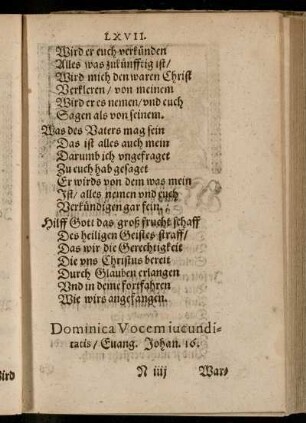 LXVII.
Wird er euch verkünden
Alles was zukünfftig ist/
Wird mich den waren Christ
Verkleren/ von meinem
Wird er es nemen/ vnd euch
Sagen als von seinem.
Was des Vaters mag sein
Das ist alles auch mein
Darumb ich vngefraget
Zu euch hab gesaget
Er wirds von dem was mein
Ist/ alles nemen vnd euch
Verkündigen gar fein.
Hilff Gott das groß frucht schaff
Des heiligen Geistes straff/
Das wir die Gerechtigkeit
Die vns Christus bereit
Durch Glauben erlangen
Vnd in deme fortfahren
Wie wirs angefangen.
Dominica Vocem iucundi-
tatis/ Euang. Johan. 16.
N iiij War/